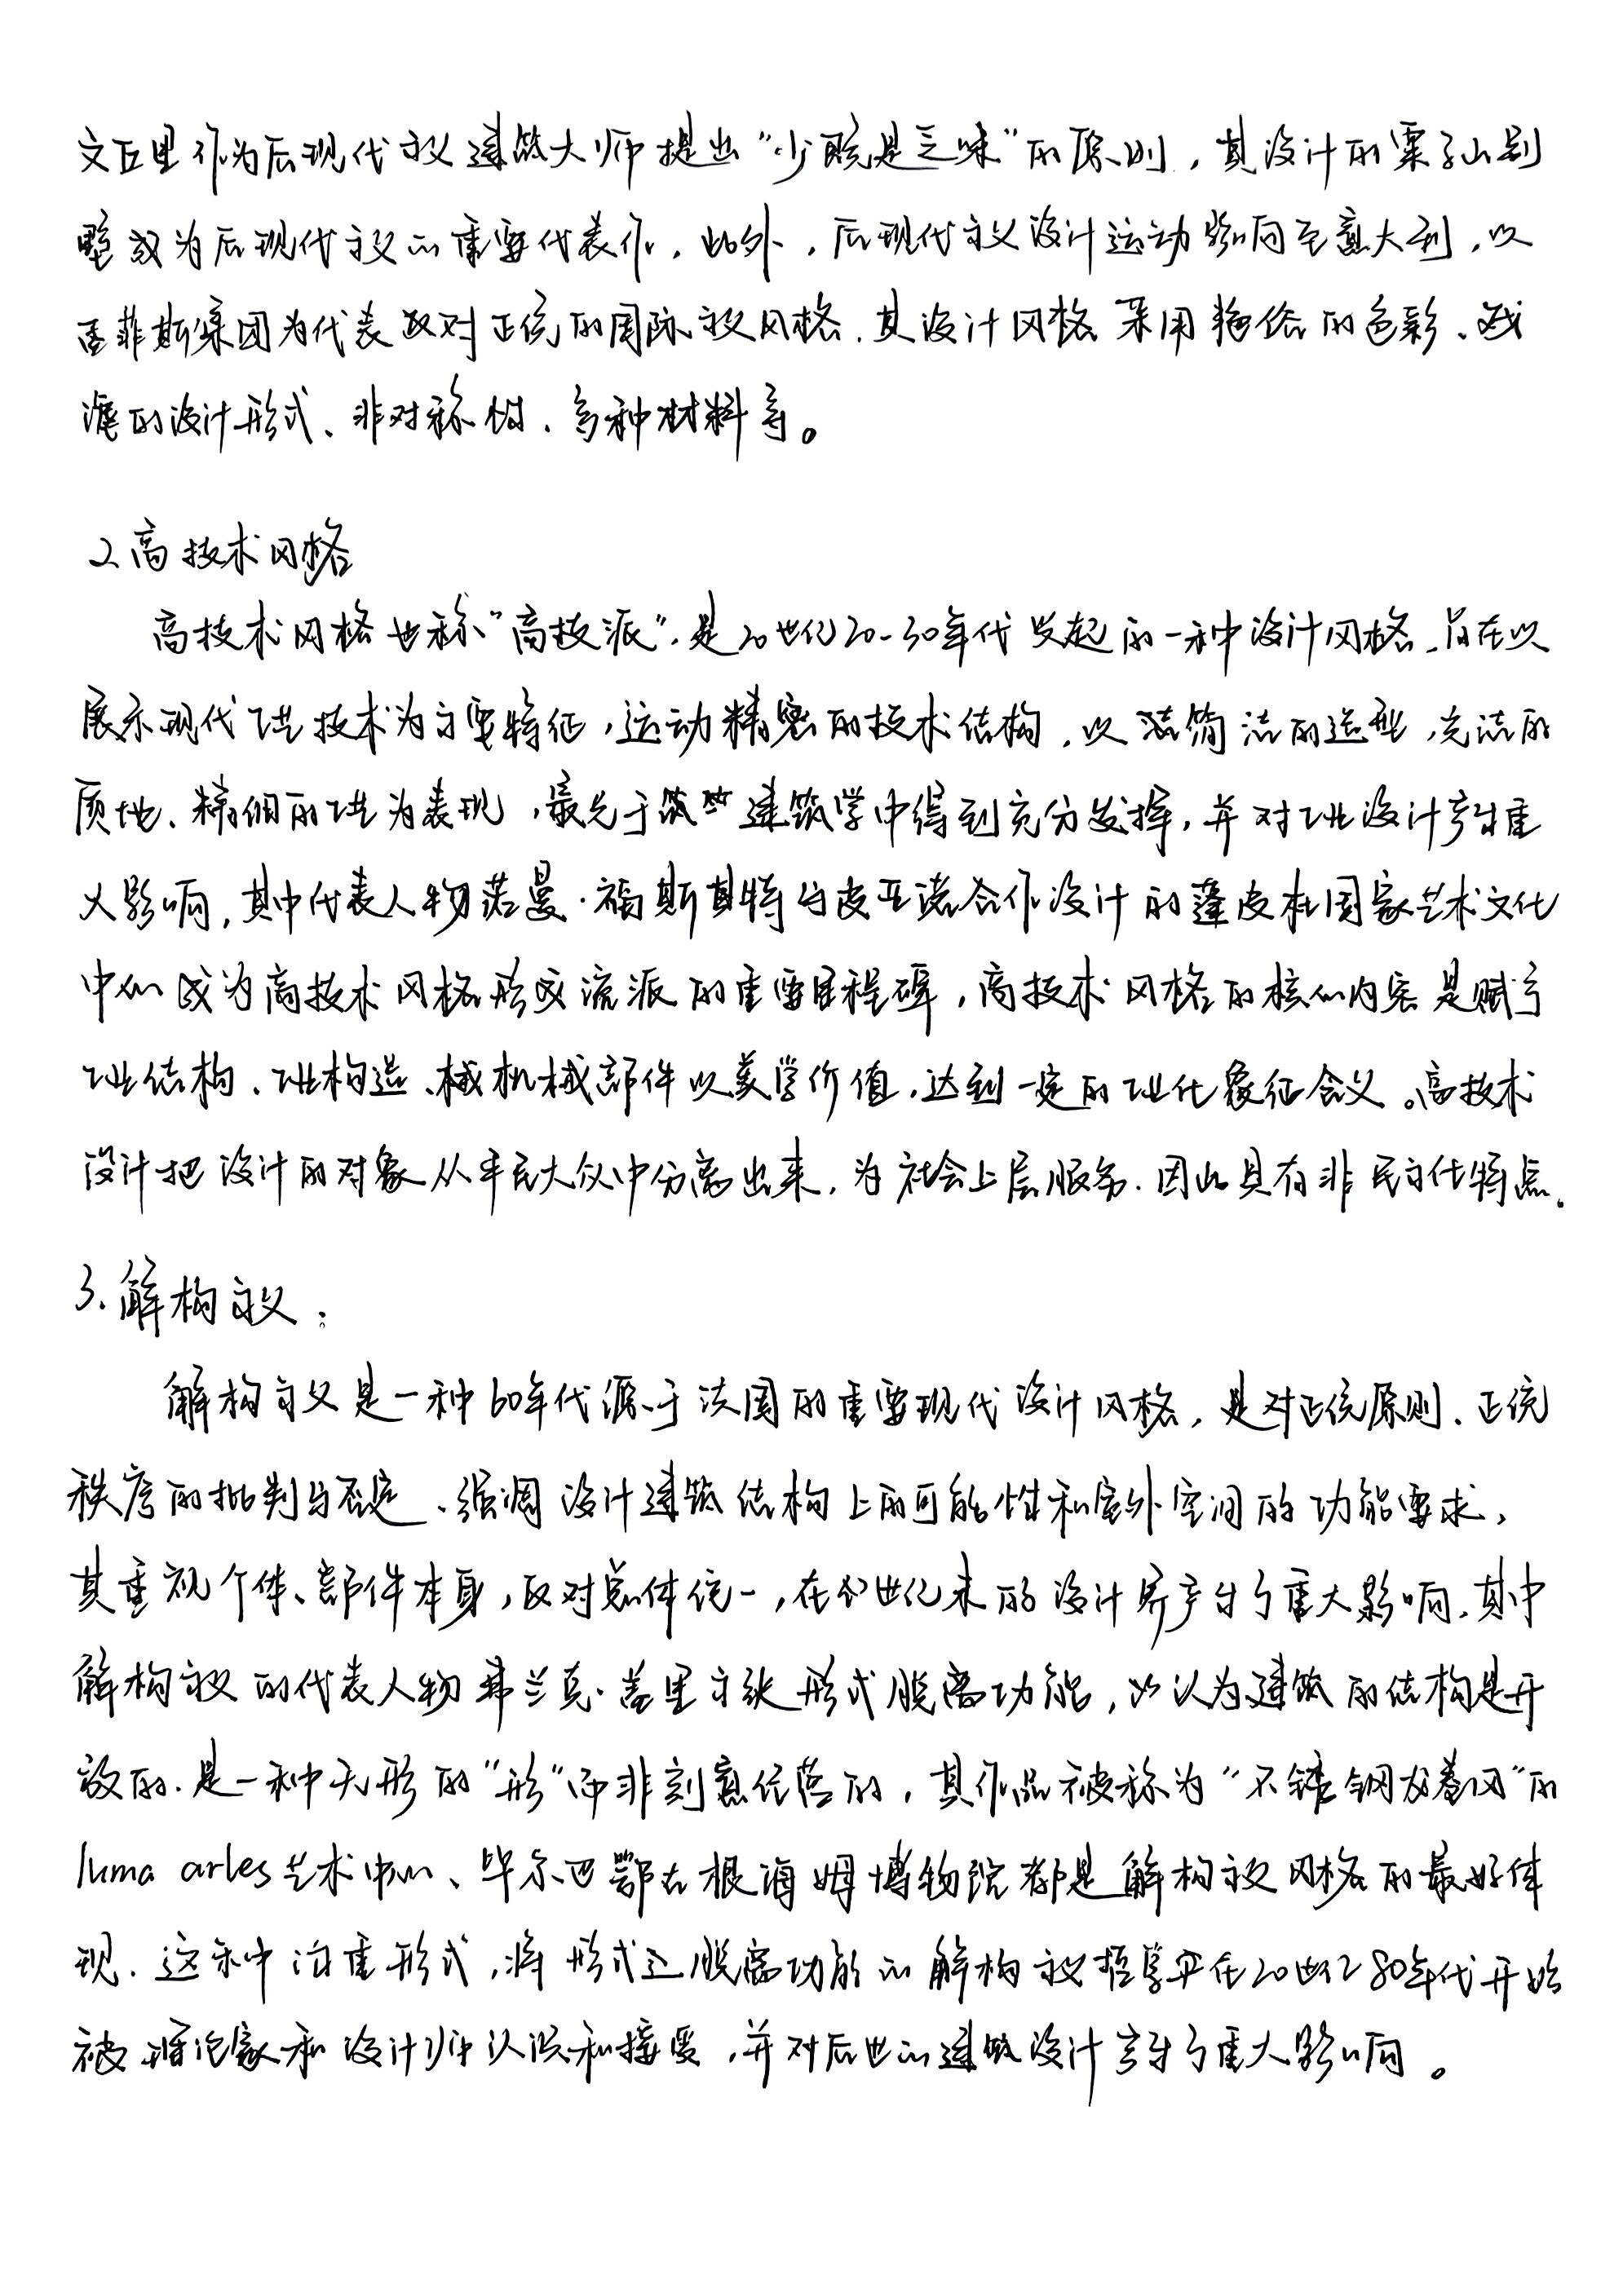 文丘里作为后现代主义建筑大师提出“少既是乏味”的原则，其设计的栗子山别
墅成为后现代主义的重要代表作，此外，后现代主义设计运动影响至意大利，以
孟菲斯集团为代表反对正统的国际主义风格，其设计风格采用艳俗的色彩、戏
谑的设计形式、非对称性、多种材料等。
2.高技术风格
高技术风格也称“高技派”，是20世纪20-30年代发起的一种设计风格，旨在以
展示现代工业技术为主要特征，运动精密的技术结构，以简洁的造型，光洁的
质地、精细的工艺为表现，最先于建筑学中得到充分发挥，并对工业设计产生重
大影响，其中代表人物诺曼·福斯特与皮亚诺合作设计的蓬皮杜国家艺术文化
中心成为高技术风格形成流派的重要里程碑，高技术风格的核心内容是赋予
工业结构、工业构造、机械部件以美学价值，达到一定的工业化象征含义。高技术
设计把设计的对象从平民大众中分离出来，为社会上层服务，因此具有非民主化特点.
3.解构主义：
解构主义是一种60年代源于法国的重要现代设计风格，是对正统原则、正统
秩序的批判与否定、强调设计建筑结构上的可能性和室外空间的功能要求，
其重视个体、部件本身，反对总体统一，在20世纪末的设计界产生了重大影响，其中
解构主义的代表人物弗兰克·盖里主张形式脱离功能，认为建筑的结构是开
放的，是一种无形的“形”而非刻意经营的，其作品被称为“不锈钢龙卷风”的
luma arles艺术中心、毕尔巴鄂古根海姆博物院都是解构主义风格的最好体
现．这种注重形式，将形式脱离功能的解构主义哲学在20世纪80年代开始
被理论家和设计师认识和接受，并对后世的建筑设计产生了重大影响。